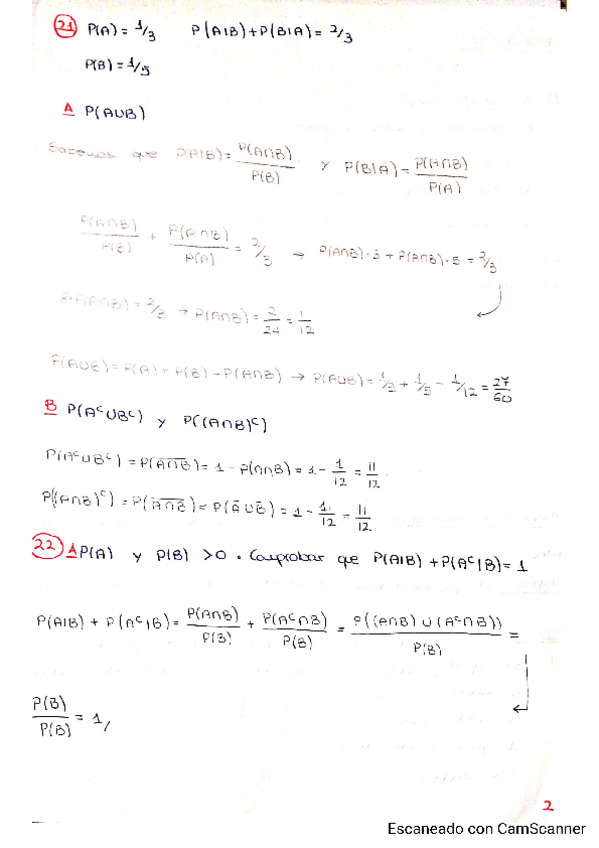 21 P(A) = 1/3 P(A|B)+P(B|A) = 2/3
P(B) = 1/5
A P(A∪B)
Sabemos que P(A|B) = P(A∩B)/P(B) y P(B|A) = P(A∩B)/P(A)
P(A∩B)/P(B) + P(A∩B)/P(A) = 2/3 → P(A∩B)·3 + P(A∩B)·5 = 2/3
8·P(A∩B) = 2/3 → P(A∩B) = 2/24 = 1/12
P(A∪B) = P(A) + P(B) - P(A∩B) → P(A∪B) = 1/3 + 1/5 - 1/12 = 27/60
B P(Aᶜ∪Bᶜ) y P((A∩B)ᶜ)
P(Aᶜ∪Bᶜ) = P(A̅∩̅B̅) = 1 - P(A∩B) = 1 - 1/12 = 11/12
P((A∩B)ᶜ) = P(A̅∩̅B̅) = P(A̅∪B̅) = 1 - 1/12 = 11/12
22 A P(A) y P(B) >0. Comprobar que P(A|B) + P(Aᶜ|B) = 1
P(A|B) + P(Aᶜ|B) = P(A∩B)/P(B) + P(Aᶜ∩B)/P(B) = P((A∩B) ∪ (Aᶜ∩B))/P(B) =
P(B)/P(B) = 1,
2
Escaneado con CamScanner